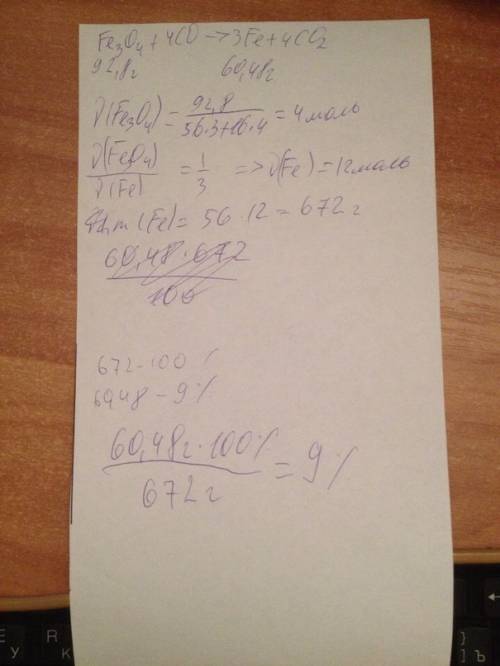 Fe₃O₄ + 4CO → 3Fe + 4CO₂
92,8г 60,48г
ν(Fe₃O₄) = 92,8 / 56·3+16·4 = 4 моль
ν(Fe₃O₄) / ν(Fe) = 1/3 => ν(Fe) = 12 моль
m(Fe) = 56 · 12 = 672 г
60,48 · 672 / 100
672 - 100 %
60,48 - 9 %
60,48г · 100% / 672 г = 9 %